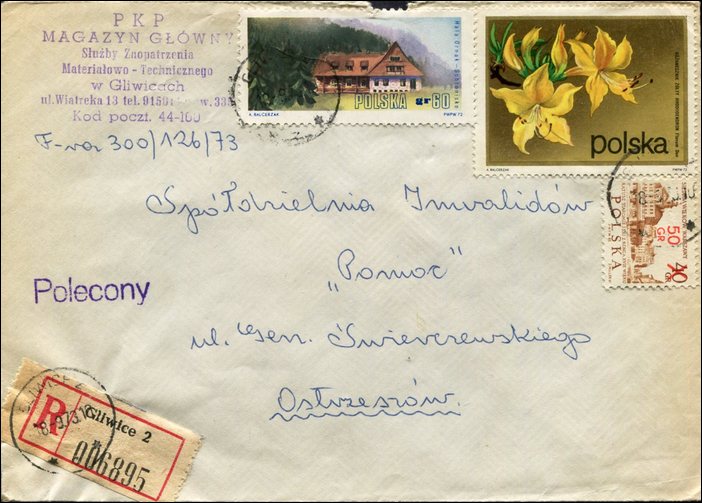 PKP
MAGAZYN GŁÓWNY
Służby Zaopatrzenia
Materiałowo - Technicznego
w Gliwicach
ul. Wiatreka 13 tel. 9150 w. 33
Kod poczt. 44-100
F-var 300/126/73
POLSKA gr 60
A. BALCERZAK
PWPW 72
polska
A. BALCERZAK
PWPW 72
50 GR
40 GR
POLSKA
Spółdzielnia Inwalidów
„Pomoc"
ul. Gen. Świerczewskiego
Ostrzeszów.
Polecony
R
Gliwice 2
006895
18-9 73